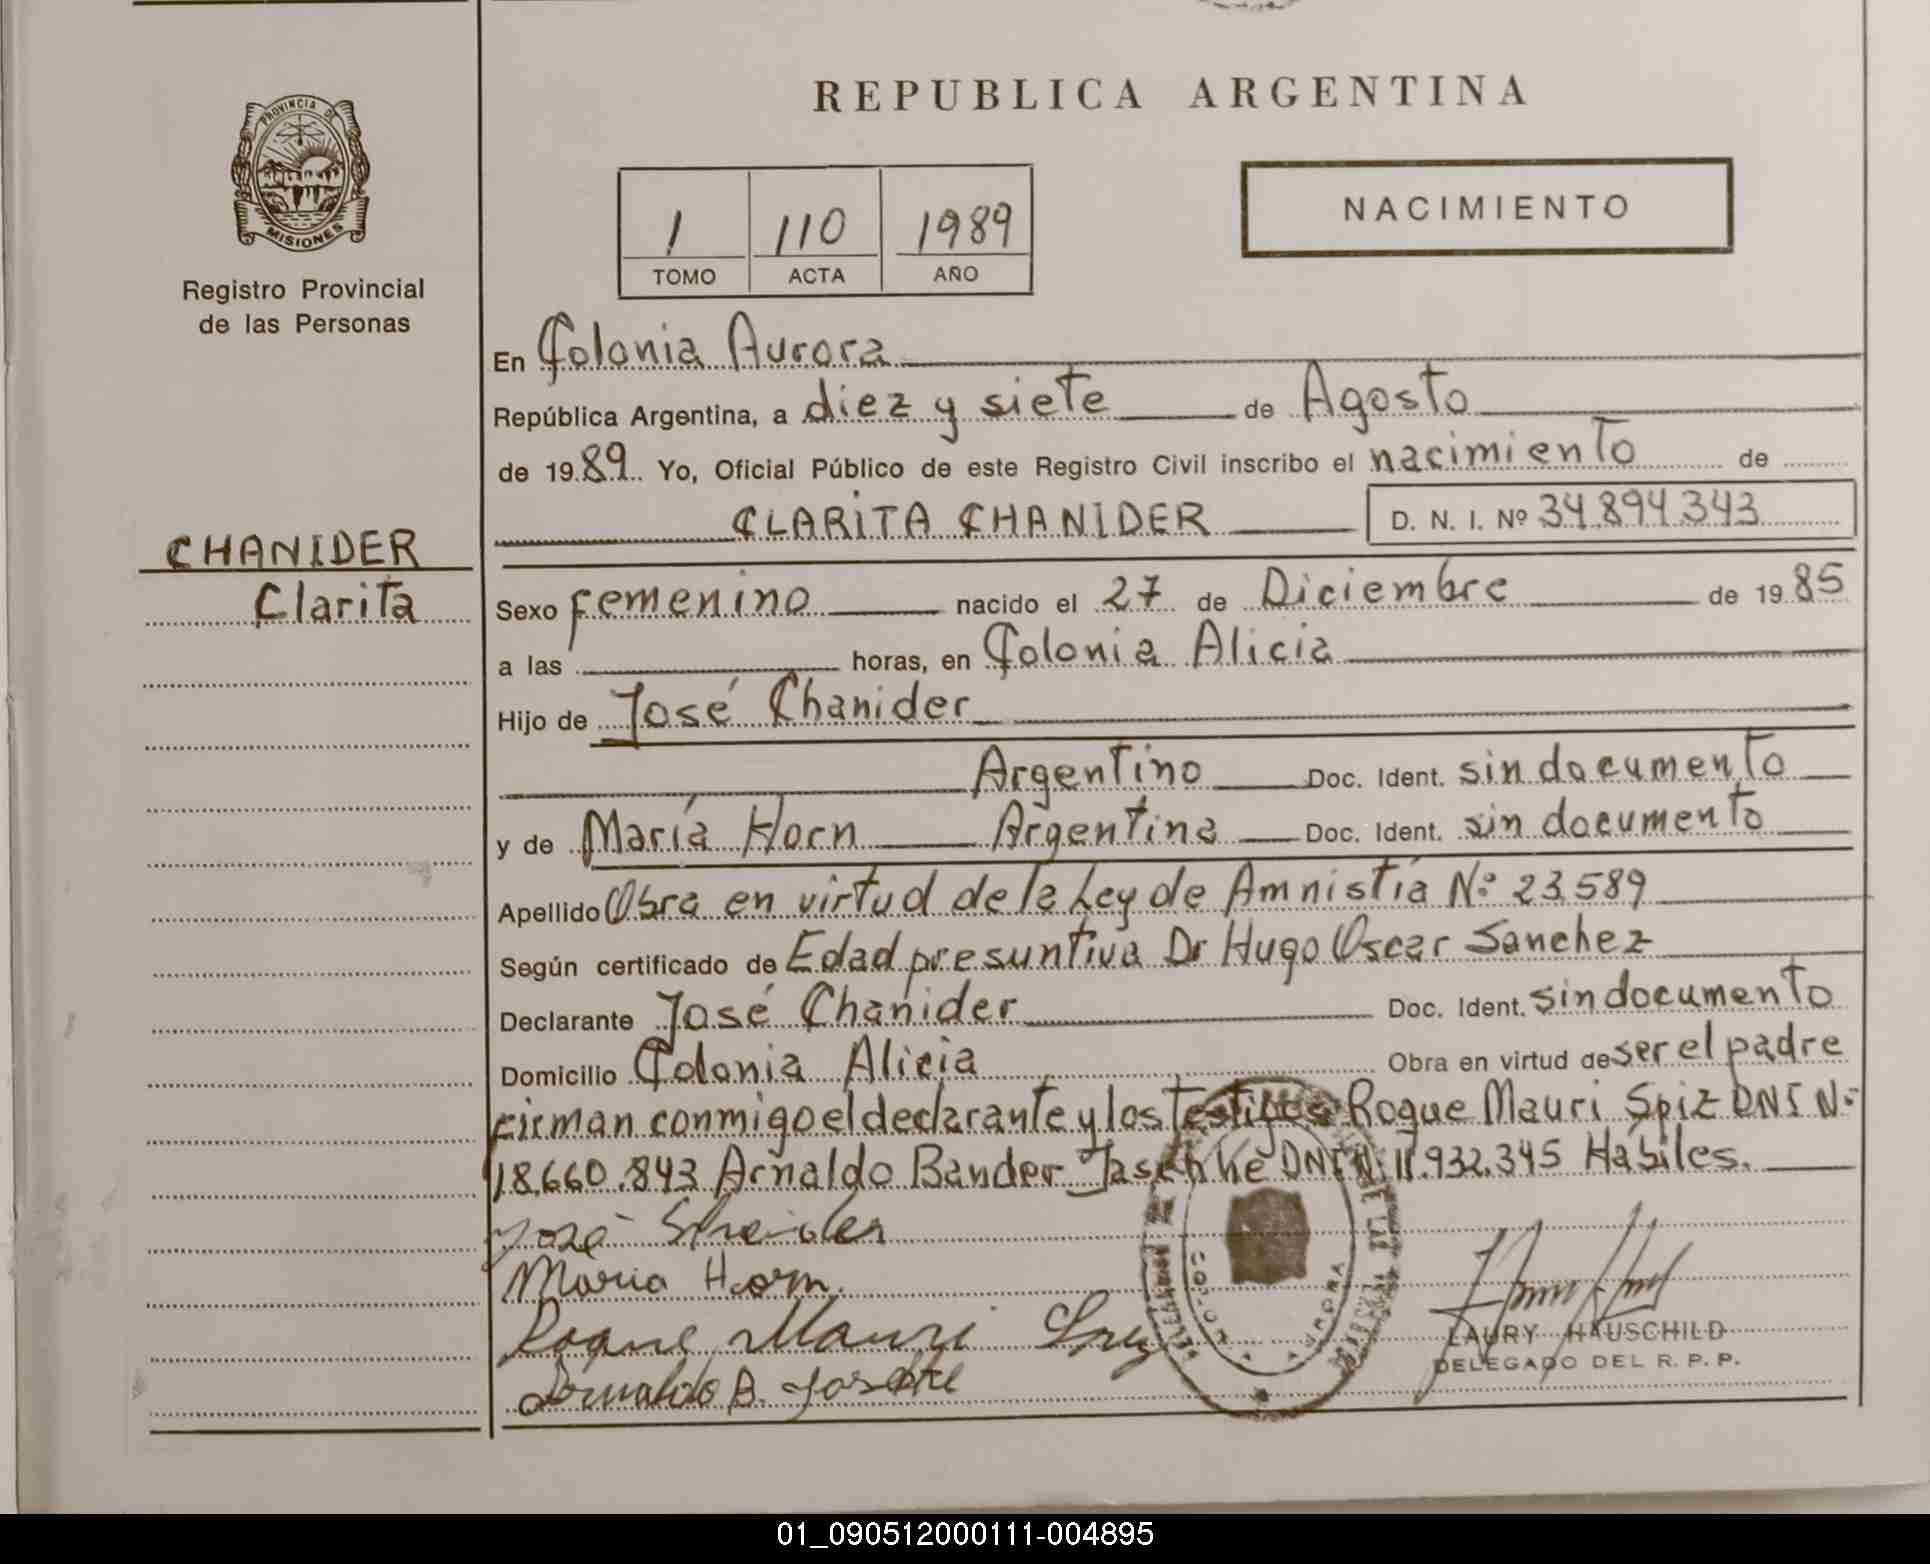 REPUBLICA ARGENTINA
PROVINCIA DE
MISIONES
Registro Provincial
de las Personas
1 110 1989
TOMO ACTA AÑO
NACIMIENTO
En Colonia Aurora
República Argentina, a diez y siete de Agosto
de 1989. Yo, Oficial Público de este Registro Civil inscribo el nacimiento de
CLARITA CHANIDER D. N. I. Nº 34.894.343
CHANIDER
Clarita
Sexo femenino nacido el 27 de Diciembre de 1985
a las horas, en Colonia Alicia
Hijo de José Chanider
Argentino Doc. Ident. sin documento
y de María Horn Argentina Doc. Ident. sin documento
Apellido Obra en virtud de la Ley de Amnistía Nº 23.589
Según certificado de Edad presuntiva Dr Hugo Oscar Sanchez
Declarante José Chanider Doc. Ident. sin documento
Domicilio Colonia Alicia Obra en virtud de ser el padre
firman conmigo el declarante y los testigos Roque Mauri Spiz DNI Nº
18.660.843 Arnaldo Bander Jaschke DNI Nº 11.932.345 Hábiles.
José
Maria Horn.
Roque Mauri
B.
LAURY HAUSCHILD
DELEGADO DEL R. P. P.
01_090512000111-004895